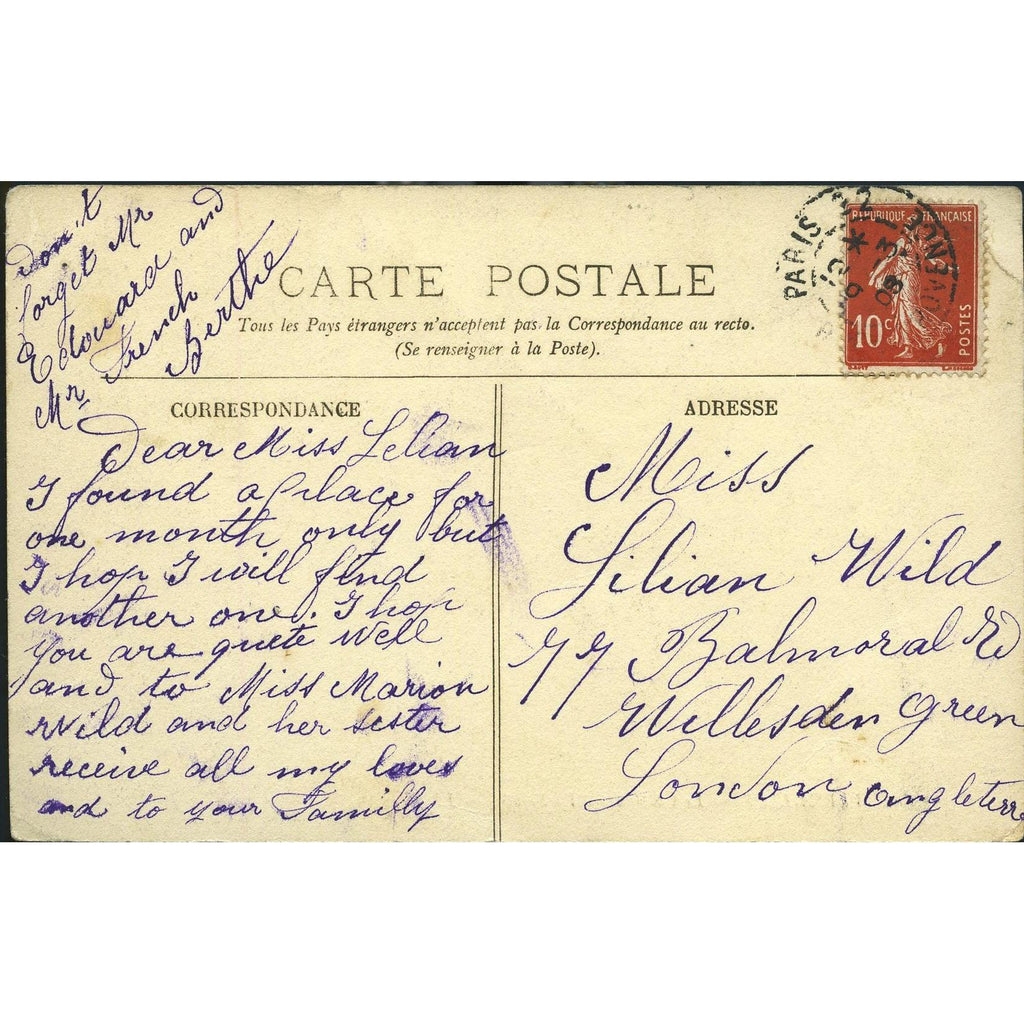 don't
forget Mr
Edouard and
Mr French
Berthe
CARTE POSTALE
Tous les Pays étrangers n'acceptent pas la Correspondance au recto.
(Se renseigner à la Poste).
CORRESPONDANCE
Dear Miss Lelian
I found a place for
one month only but
I hop I will find
another one. I hop
you are quete well
and to Miss Marion
Wild and her sester
receive all my loves
and to your Familly
PARIS 22
REPUBLIQUE FRANÇAISE
10c
POSTES
ADRESSE
Miss
Lilian Wild
77 Balmoral Rd
Willesden Green
London Angleterre